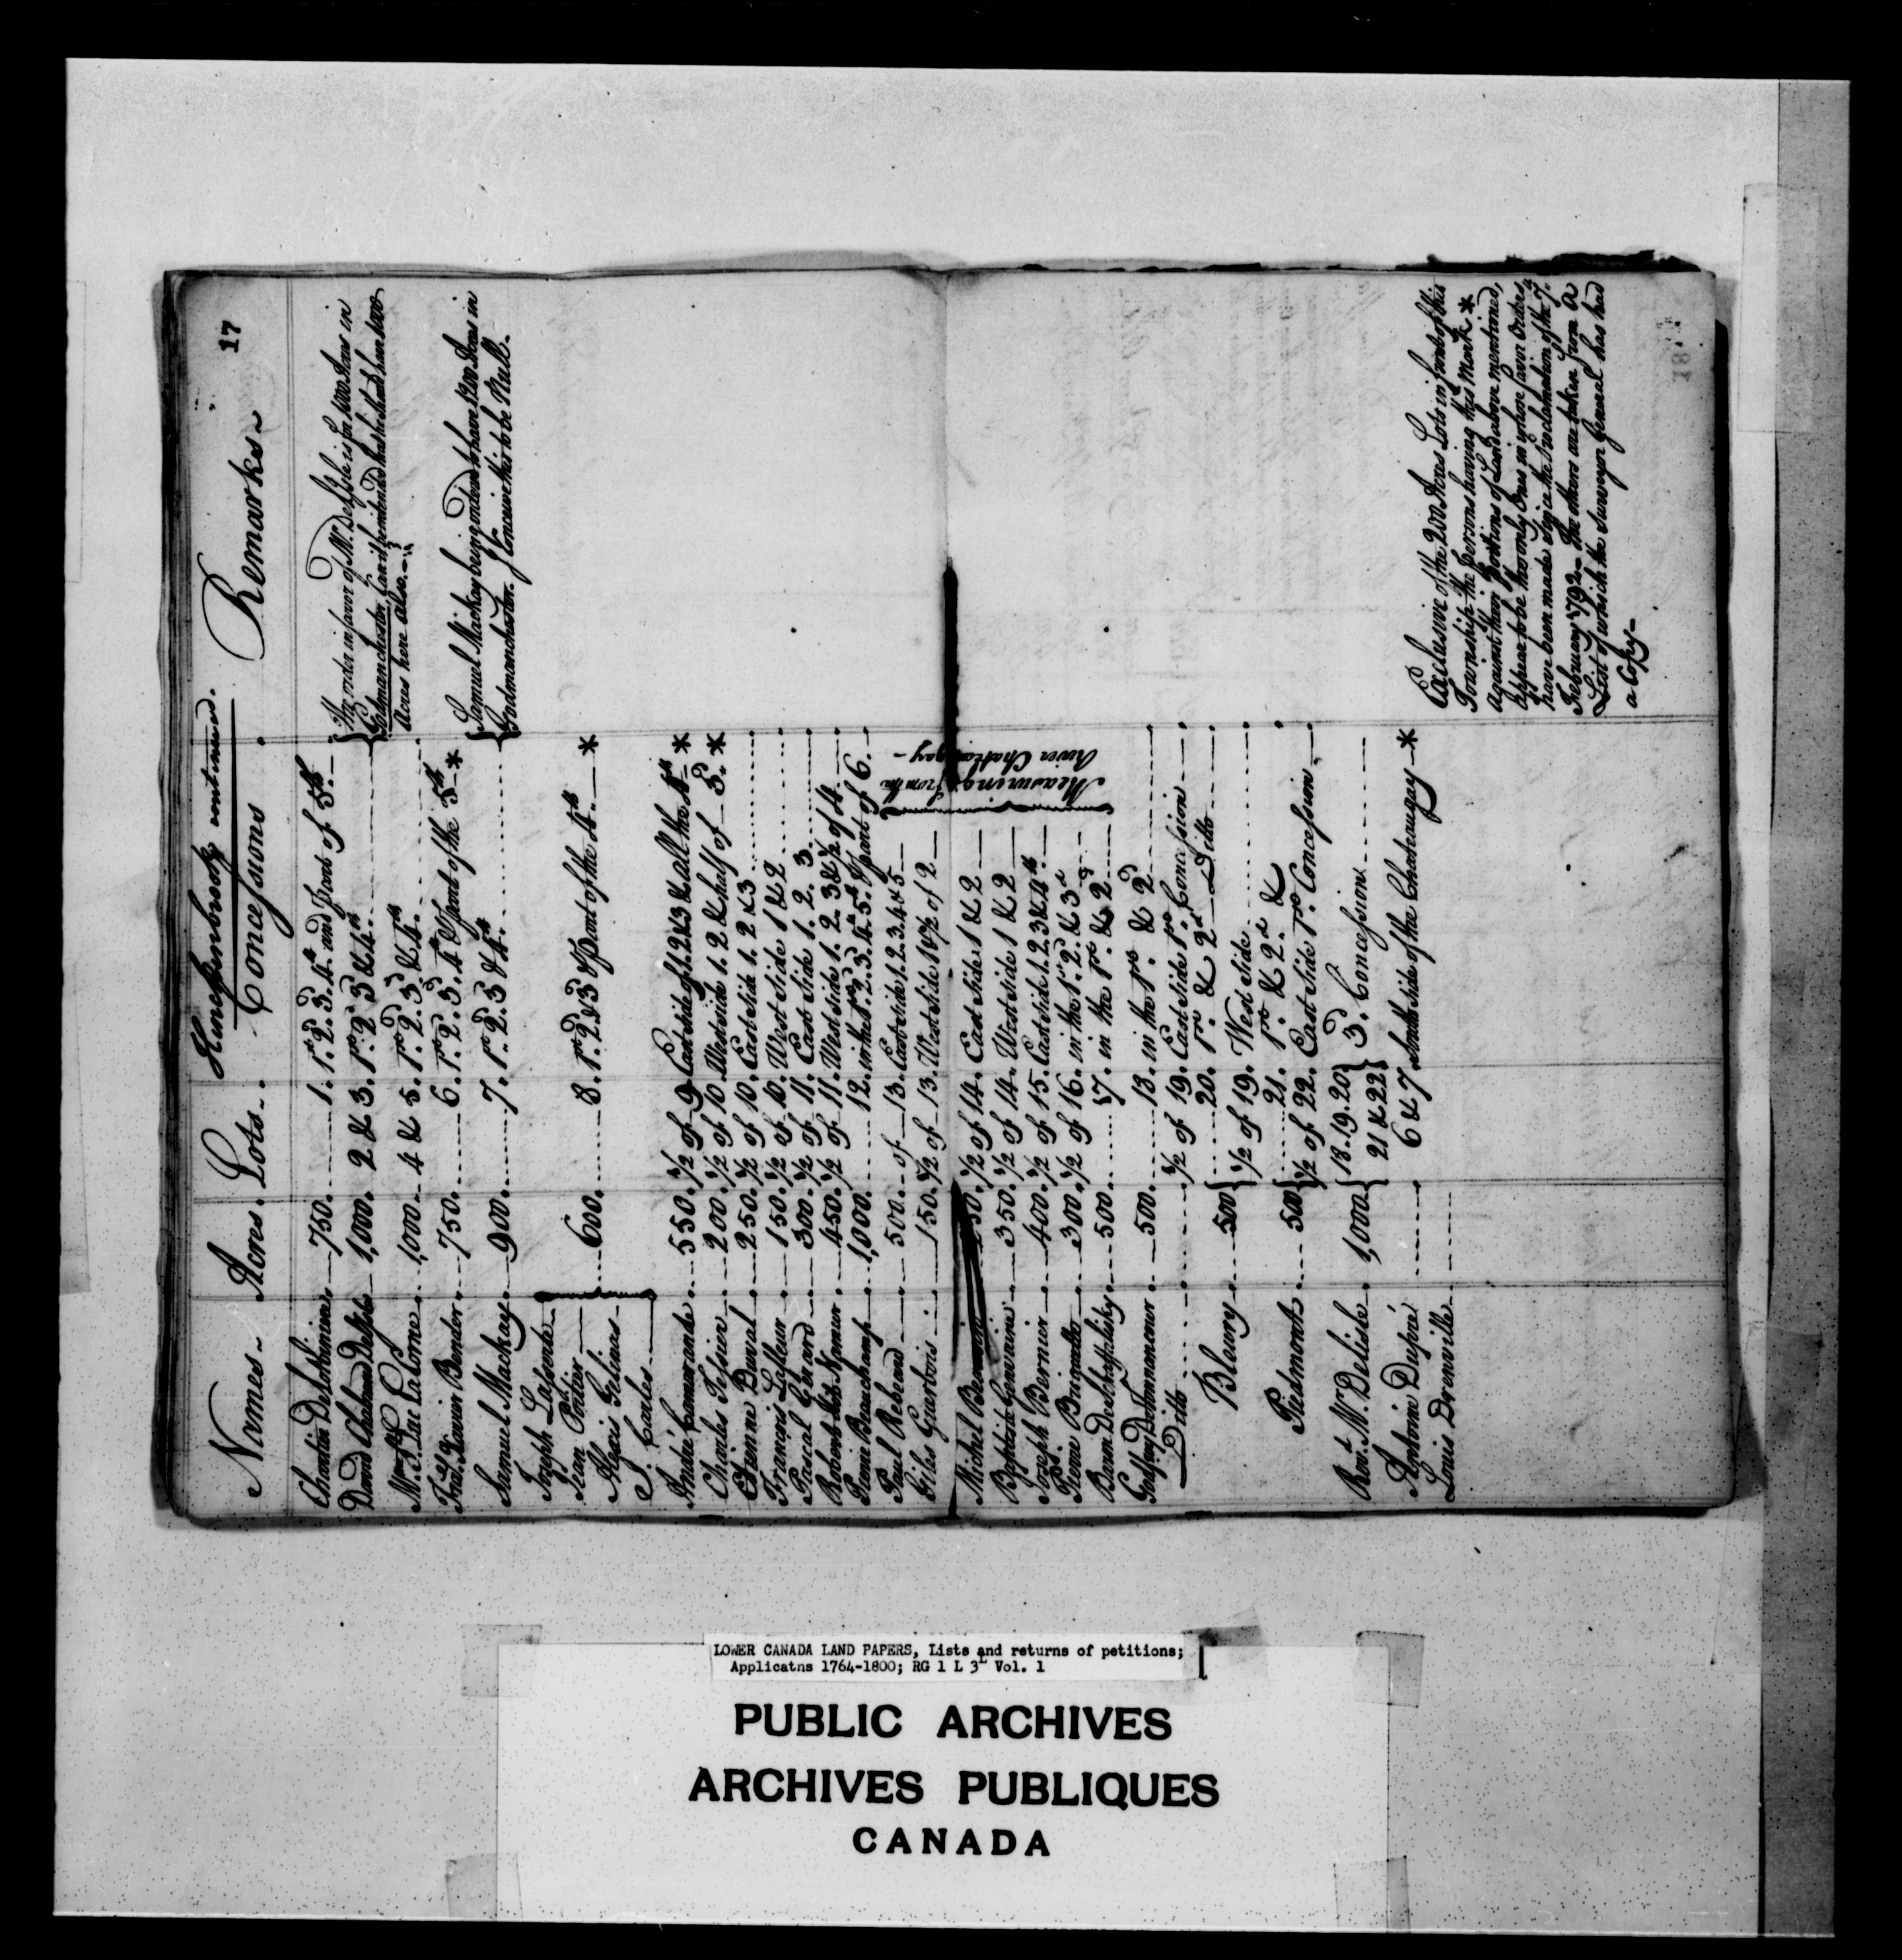 17
Hinchinbrook continued.
Names Acres. Lots. Concessions Remarks
750. 1. 1st 2d 3d 4th and part of 5th
The order in favor of Mr Delisle is for 1000 Acres in
David Chabrand Delisle 1,000. 2 & 3. 1st 2d 3d & 4th
Godmanchester,
Acres here also.
1,000. 4 & 5. 1st 2d 3d & 4th
Bender 750. 6. 1st 2d 3d 4th & part of the 5th *
Samuel Mackay 900. 7. 1st 2d 3d & 4th
Samuel Mackay being ordered to have 1200 Acres in
Godmanchester. I conceive this to be Null.
Joseph
Jean Potier
Alexis Gelinas
J. Carles
600. 8. 1st 2d & 3d & part of the 4th *
André 550. 1/2 of 9. East side of 1. 2. & 3 & all the 4th *
Charles Tessier 200. 1/2 of 10. West side 1. 2 & half of 3d *
Etienne Duval 250. 1/2 of 10. East side 1. 2 & 3
François Lafleur 150. 1/2 of 10. West Side 1 & 2
Pascal Gerard 300. 1/2 of 11. East Side 1. 2. 3.
Robert dit Namur 450. 1/2 of 11. West side 1. 2. 3 & 1/2 of 4
Pierre Beauchamp 1,000. 12. in the 1st 2. 3. 4. 5. & part of 6.
Paul Rebeau 500. of 13. East side 1. 2. 3. 4 & 5
Giles 150. 1/2 of 13. West side 1 & 1/2 of 2
Measuring from the
River Chateaugay
Michel 250. 1/2 of 14. East side 1 & 2
Baptist 350. 1/2 of 14. West side 1 & 2
Joseph Bernier 400. 1/2 of 15. East side 1. 2. 3 & 4th
Pierre 300. 1/2 of 16. in the 1st 2d & 3d
Baron 500 17. in the 1st & 2d
Godfrey 500. 18. in the 1st & 2d
Ditto 1/2 of 19. East side 1st Concession
20. 1st & 2d Ditto
Bleury 500 1/2 of 19. West side
21. 1st & 2d &
Piedmont 500 1/2 of 22. East side 1st Concession
Revd. Mr Delisle 1,000 18. 19. 20 21 & 22 3d Concession
Antoine Dupré 6 & 7 South side of the Chateaugay *
Louis Drenville
Exclusive of the 200 Acres Lots in front of this
Township the persons having this Mark *
against their Portions of Land above mentioned,
Appear to be the only Ones in whose favor Orders
have been made since the Proclamation of the 7.
February 1792 — The others are taken from a
List of which the Surveyor General has had
a Copy —
18
LOWER CANADA LAND PAPERS, Lists and returns of petitions;
Applicatns 1764-1800; RG 1 L 3L Vol. 1
PUBLIC ARCHIVES
ARCHIVES PUBLIQUES
CANADA